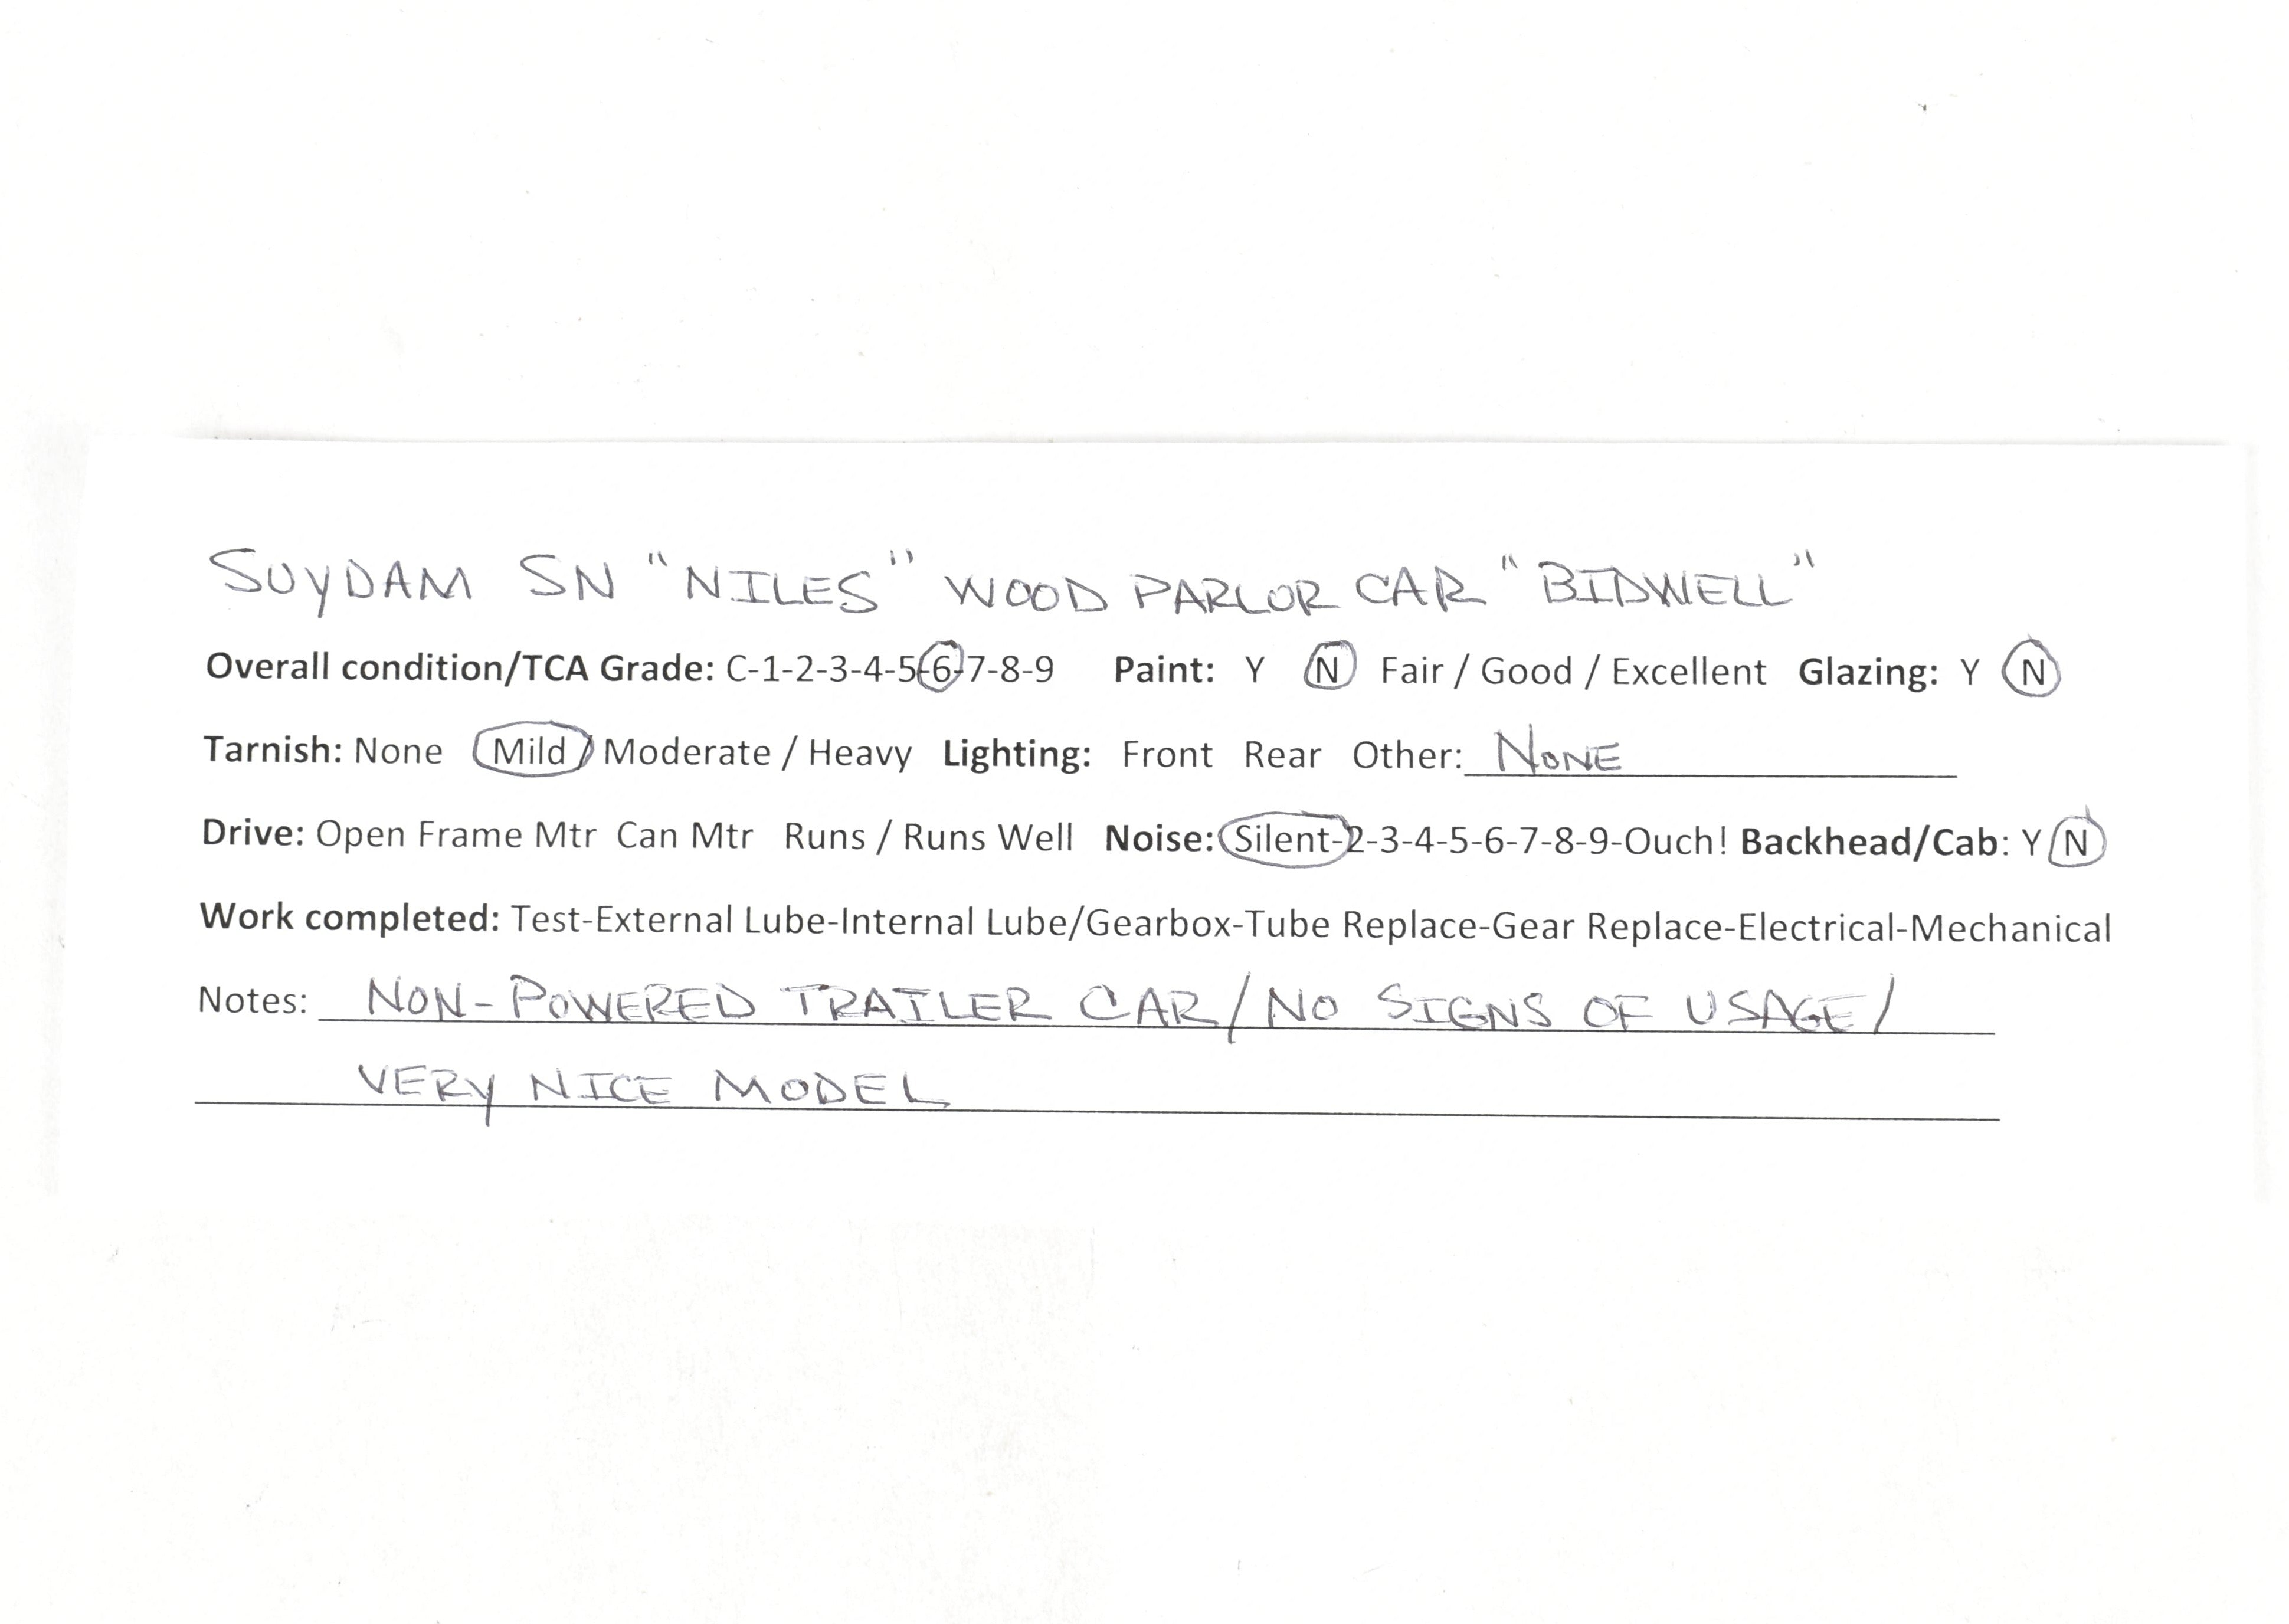 SUYDAM SN "NILES" WOOD PARLOR CAR "BIDWELL"
Overall condition/TCA Grade: C-1-2-3-4-5-6-7-8-9 Paint: Y N Fair / Good / Excellent Glazing: Y N
Tarnish: None Mild / Moderate / Heavy Lighting: Front Rear Other: NONE
Drive: Open Frame Mtr Can Mtr Runs / Runs Well Noise: Silent-2-3-4-5-6-7-8-9-Ouch! Backhead/Cab: Y N
Work completed: Test-External Lube-Internal Lube/Gearbox-Tube Replace-Gear Replace-Electrical-Mechanical
Notes: NON-POWERED TRAILER CAR/NO SIGNS OF USAGE/
VERY NICE MODEL